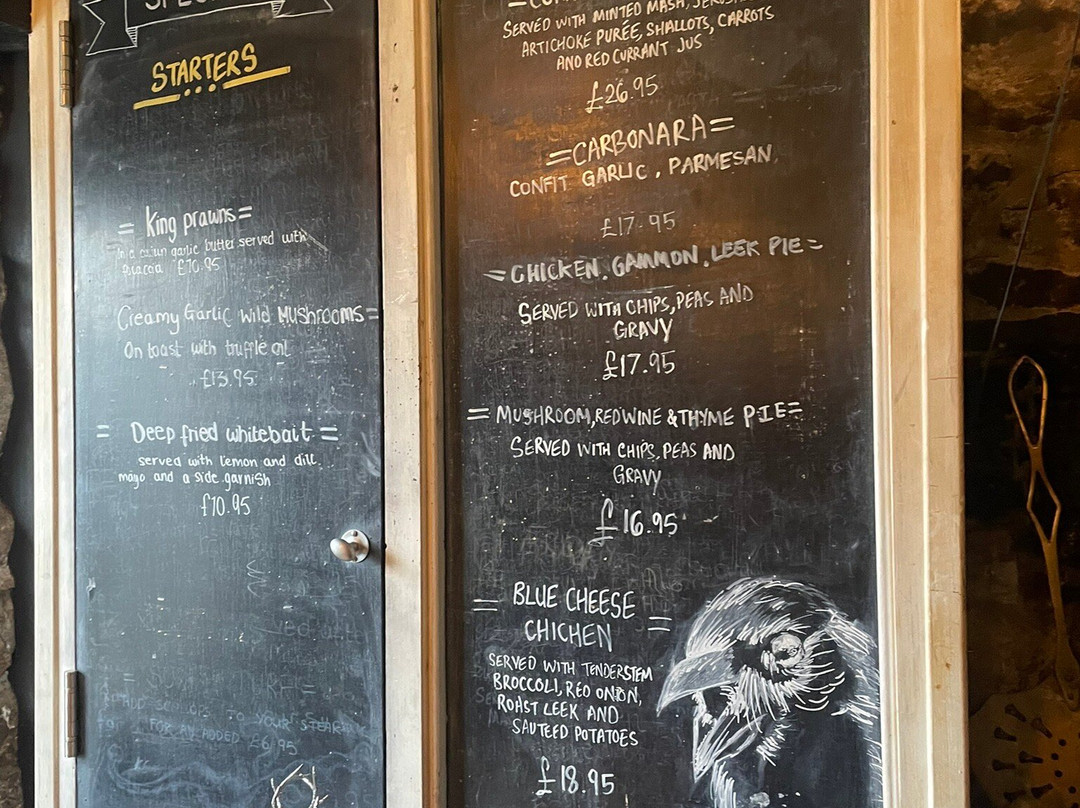 STARTERS
= King prawns =
In a cajun garlic butter served with
focacia £10.95
Creamy Garlic wild MUSHROOMS =
On toast with truffle oil
£13.95
= Deep fried whitebait =
served with lemon and dill
mayo and a side garnish
£10.95
ADD SCALLOPS TO YOUR STEAK
FOR AN ADDED £6.95
SERVED WITH MINTED MASH,
ARTICHOKE PURÉE, SHALLOTS, CARROTS
AND RED CURRANT JUS
£26.95
= CARBONARA =
CONFIT GARLIC, PARMESAN
£17.95
= CHICKEN, GAMMON, LEEK PIE =
SERVED WITH CHIPS, PEAS AND
GRAVY
£17.95
= MUSHROOM, RED WINE & THYME PIE =
SERVED WITH CHIPS, PEAS AND
GRAVY
£16.95
= BLUE CHEESE
CHICHEN =
SERVED WITH TENDERSTEM
BROCCOLI, RED ONION,
ROAST LEEK AND
SAUTEED POTATOES
£18.95